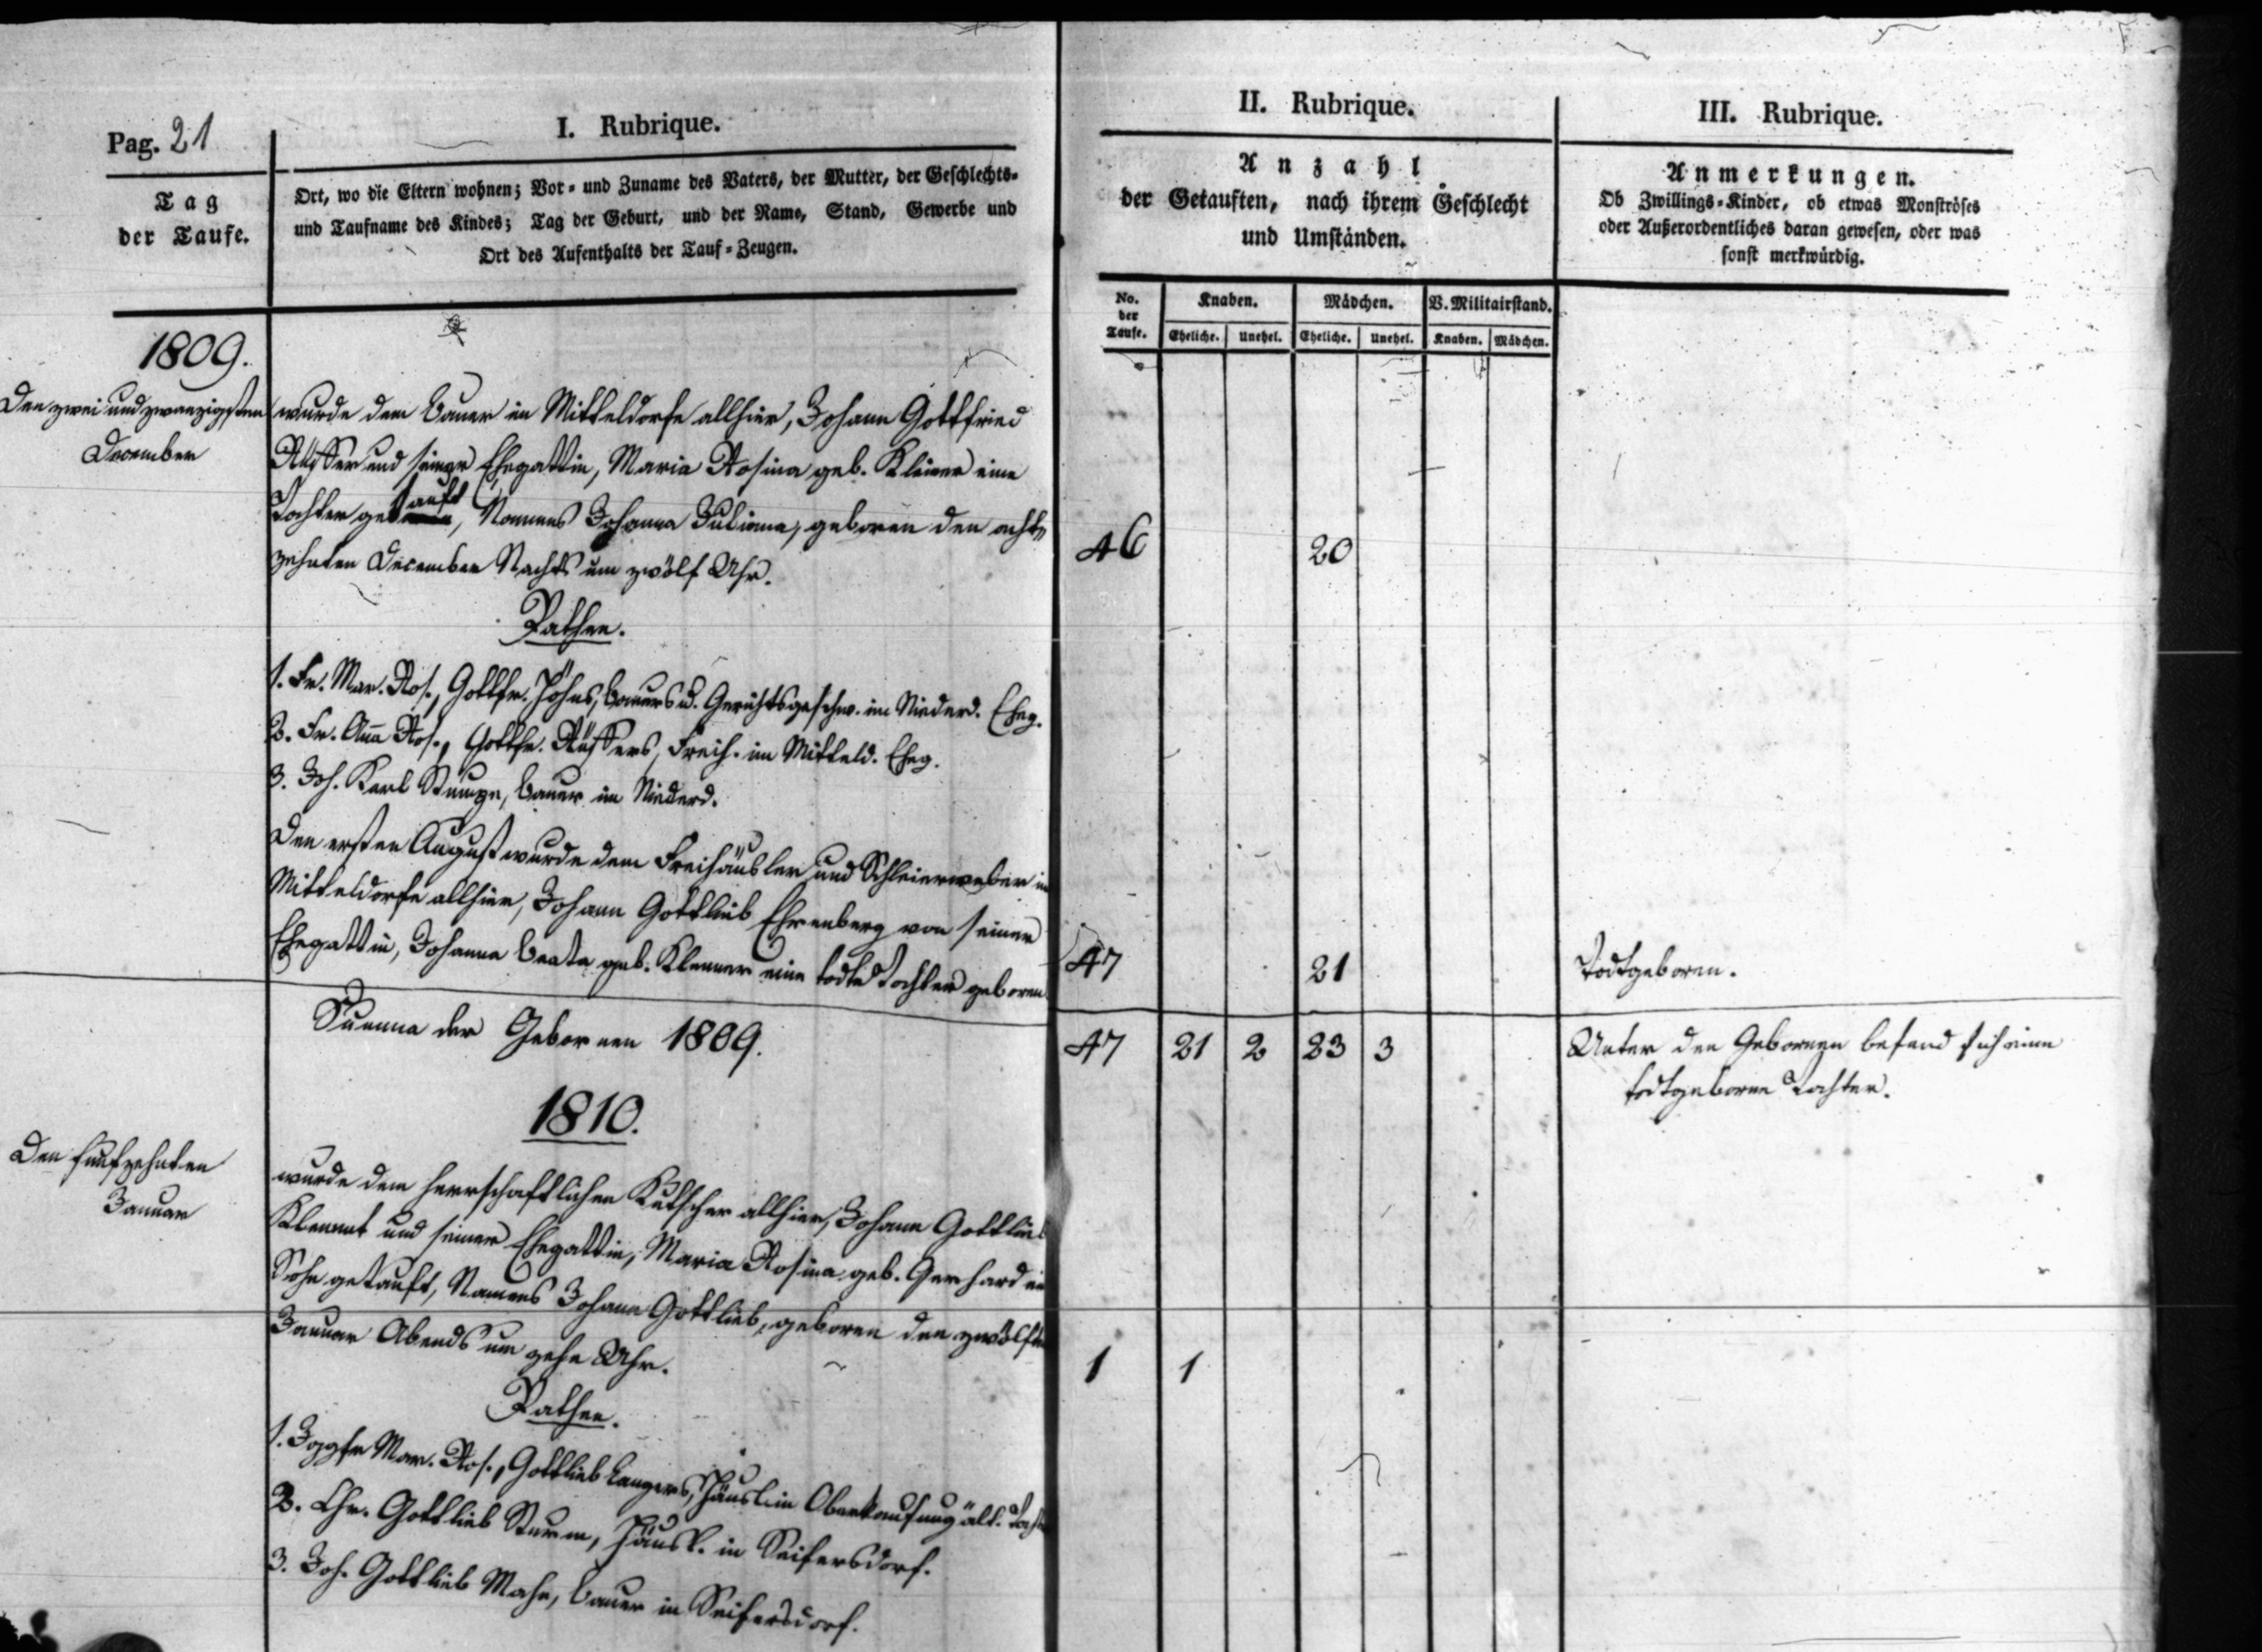 Pag. 21
I. Rubrique.
Tag
der Taufe.
Ort, wo die Eltern wohnen; Vor- und Zuname des Vaters, der Mutter, der Geschlechts-
und Taufname des Kindes; Tag der Geburt, und der Name, Stand, Gewerbe und
Ort des Aufenthalts der Tauf-Zeugen.
1809.
Den zwei und zwanzigsten
December
wurde dem Bauer im Mitteldorfe allhier, Johann Gottfried
und seiner Ehegattin, Maria Rosina geb. eine
Tochter getauft, Namens Johanna Juliana, geboren den acht-
zehnten December Nachts um zwölf Uhr.
Pathen.
1. Fr. Mar. Ros., Gottfr. Bauers u. Gerichtsgeschw. im Niederd. Eheg.
2. Fr. Aña Ros., Gottfr. Freih. im Mitteld. Eheg.
3. Joh. Karl Stumpe, Bauer im Niederd.
Den ersten August wurde dem Freihäusler und Schleierweber im
Mitteldorfe allhier, Johann Gottlieb Ehrenberg von seiner
Ehegattin, Johanna Beata geb. Klenner eine todte Tochter geboren
Summa der Gebornen 1809.
1810.
Den funfzehnten
Januar
wurde dem herrschaftlichen Kutscher allhier, Johann Gottlieb
Klemmt und seiner Ehegattin, Maria Rosina geb. Gerhard ein
Sohn getauft, Namens Johann Gottlieb, geboren den zwölften
Januar Abends um zehn Uhr.
Pathen.
1. Jggfr Mar. Ros., Gottlieb Langers, Häusl. in Oberkaufung ält. Tocht
2. Chr. Gottlieb Sturm, Häusl. in Seifersdorf.
3. Joh. Gottlieb Mahn, Bauer in Seifersdorf.
II. Rubrique.
Anzahl
der Getauften, nach ihrem Geschlecht
und Umständen.
No. der Taufe. Knaben. Mädchen. V. Militairstand.
Eheliche. Unehel. Eheliche. Unehel. Knaben. Mädchen.
46 20
47 21
47 21 2 23 3
1 1
III. Rubrique.
Anmerkungen.
Ob Zwillings-Kinder, ob etwas Monströses
oder Außerordentliches daran gewesen, oder was
sonst merkwürdig.
Todtgeboren.
Unter den Gebornen befand sich eine
todtgeborne Tochter.